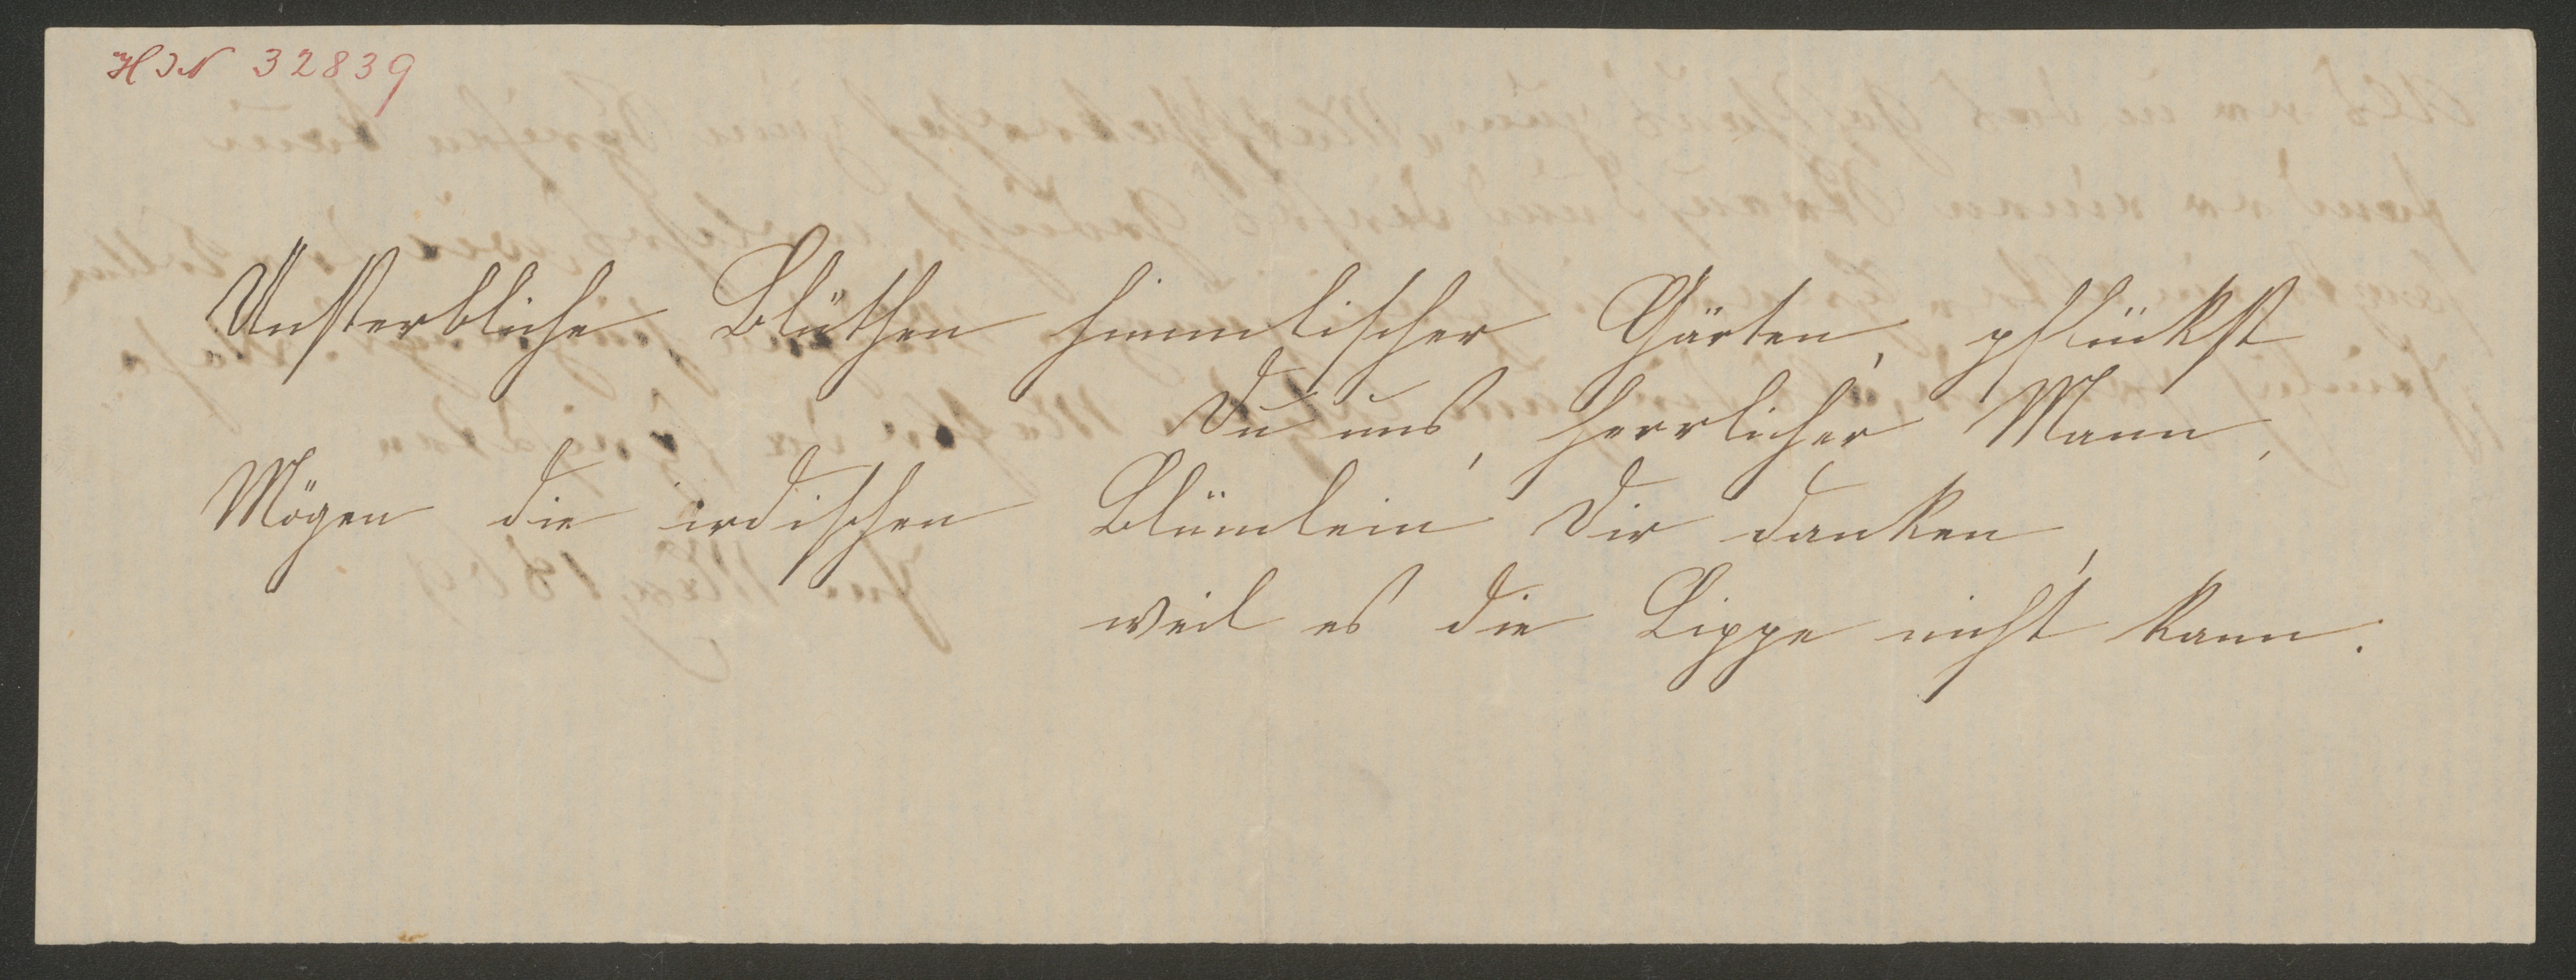 HIN 32839
Unsterbliche Blüthen himmlischer Gärten, pflückst
Du uns, herrlicher Mann,
Mögen die irdischen Blümlein Dir danken,
weil es die Lippe nicht kann.